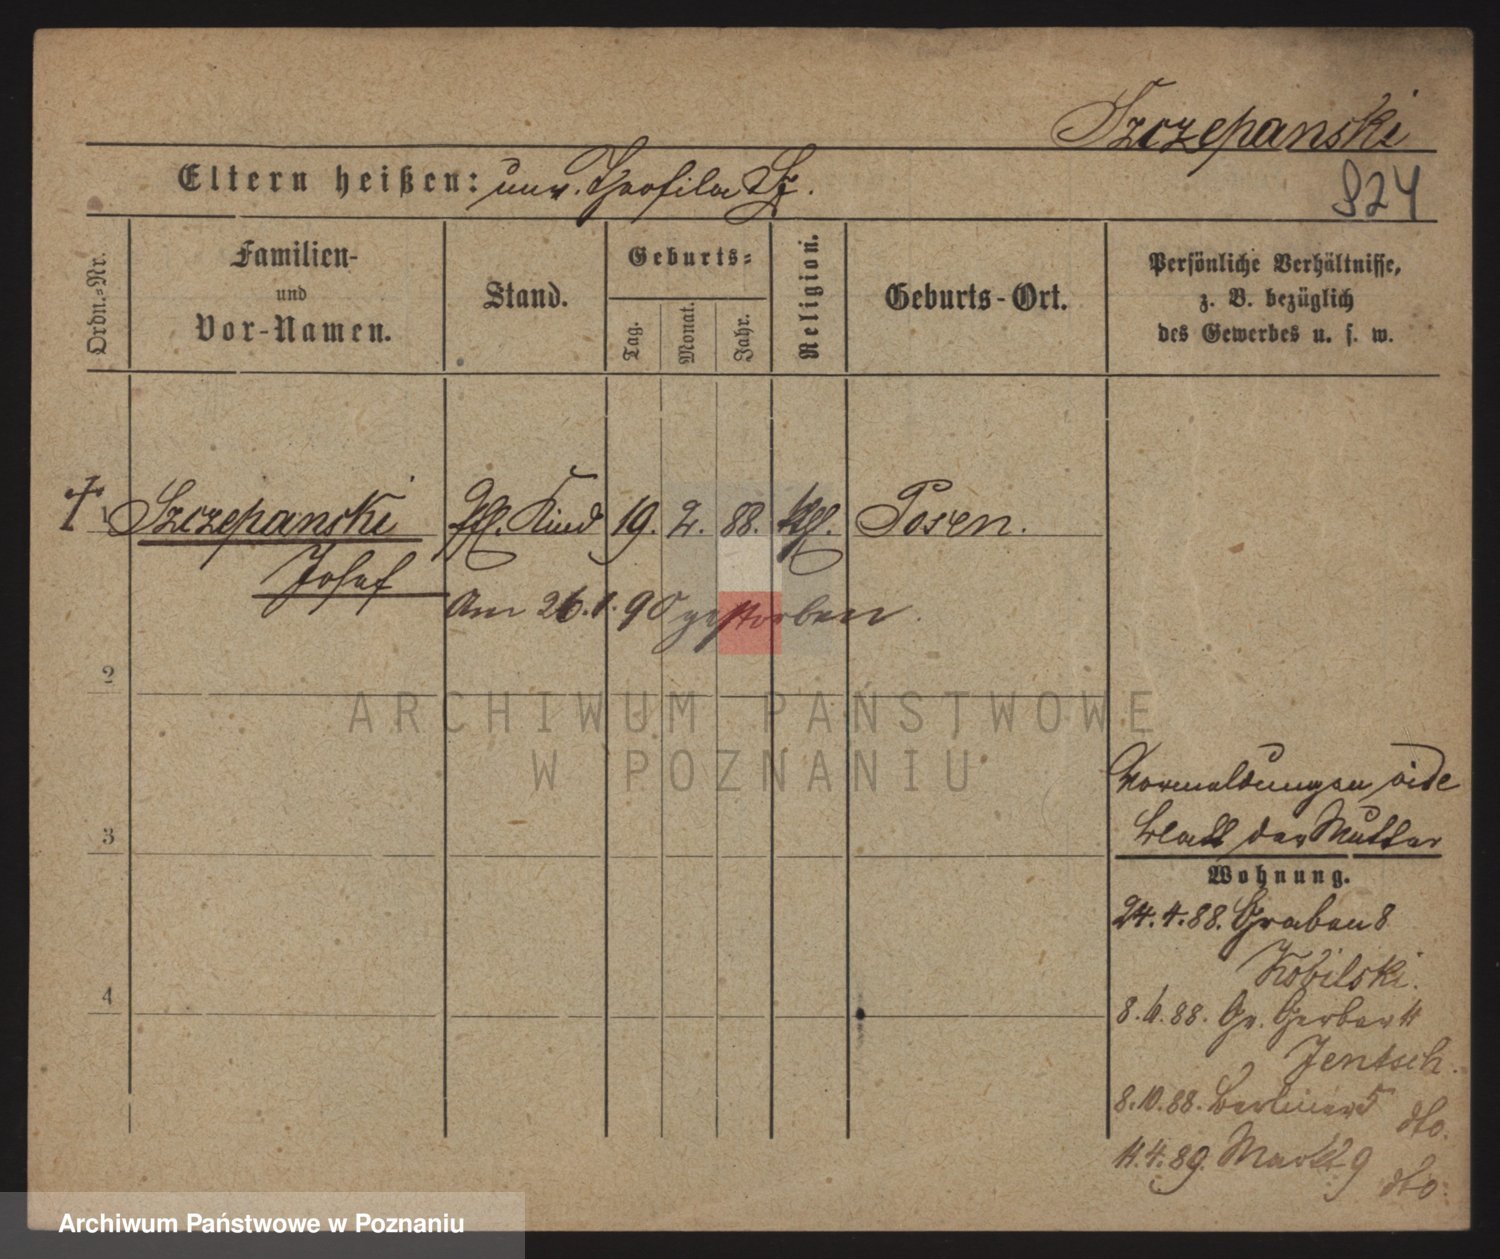 Szczepanski
Eltern heißen: unv. Theofila Sz.
924
Ordn.-Nr.
Familien-
und
Vor-Namen.
Stand.
Geburts-
Tag.
Monat.
Jahr.
Religion.
Geburts-Ort.
Persönliche Verhältnisse,
z. B. bezüglich
des Gewerbes u. s. w.
1 Szczepanski Kind 19. 2. 88. kth. Posen.
Josef
Am 26.1.90 gestorben.
2
ARCHIWUM PAŃSTWOWE
W POZNANIU
Vormeldungen vide
3 Blatt der Mutter
Wohnung.
24.4.88. Graben 8
Kobilski.
4
8.6.88. Gr. Gerber 4
Jentsch.
8.10.88. Berliner 5 dto.
11.4.89. Markt 9 dto.
Archiwum Państwowe w Poznaniu